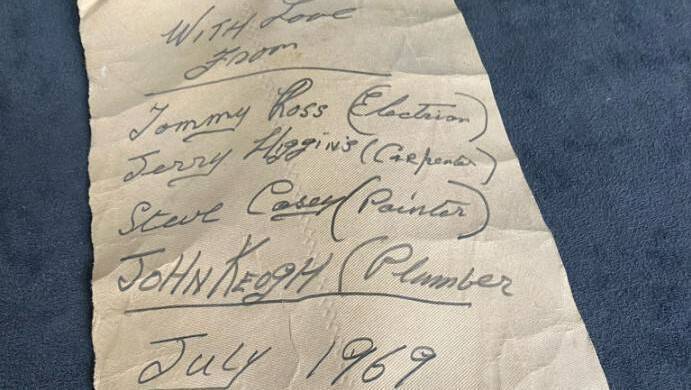 With Love
From
Tommy Ross (Electrion)
Jerry Higgins (Carpenter)
Steve Casey (Painter)
JOHN KEOGH (Plumber
July 1969